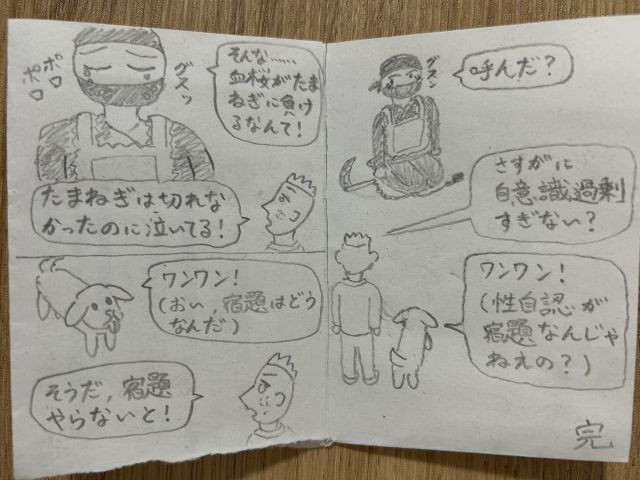 そんな……
血桜がたま
ねぎに負け
るなんて!
ポロ
ポロ
グスッ
たまねぎは切れな
かったのに泣いてる!
ワンワン!
(おい,宿題はどう
なんだ)
そうだ,宿題
やらないと!
呼んだ?
グスン
さすがに
自意識過剰
すぎない?
ワンワン!
(性自認が
宿題なんじゃ
ねえの?)
完